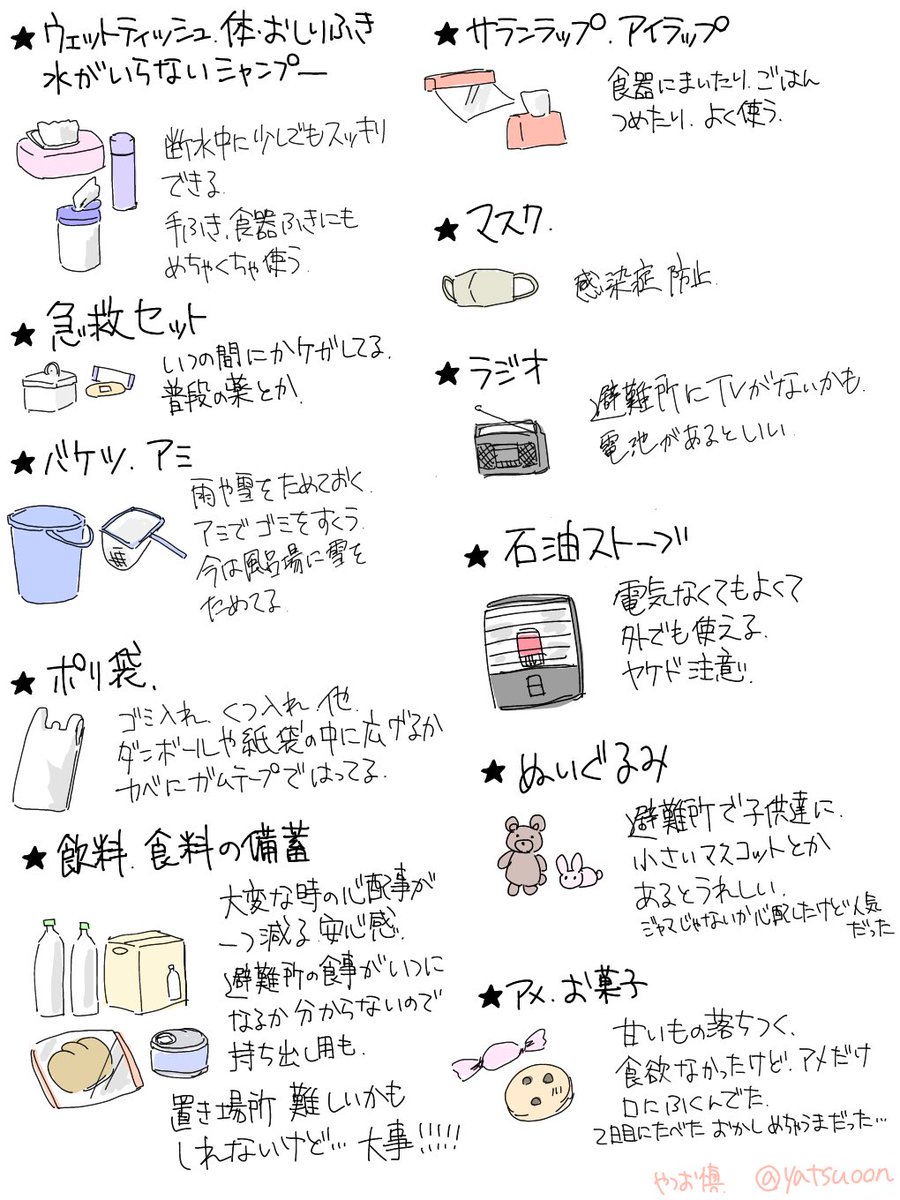 ★ウェットティッシュ.体・おしりふき
水がいらないシャンプー
断水中に少しでもスッキリ
できる.
手ふき.食器ふきにも
めちゃくちゃ使う.
★急救セット
いつの間にかケガしてる.
普段の薬とか.
★バケツ.アミ
雨や雪をためておく.
アミでゴミをすくう.
今は風呂場に雪を
ためてる.
★ポリ袋.
ゴミ入れ.くつ入れ.他.
ダンボールや紙袋の中に広げるか
カベにガムテープではってる.
★飲料.食料の備蓄
大変な時の心配事が
一つ減る.安心感.
避難所の食事がいつに
なるか分からないので
持ち出し用も.
置き場所 難しいかも
しれないけど… 大事!!!!!
★サランラップ.アイラップ
食器にまいたり.ごはん
つめたり.よく使う.
★マスク.
感染症防止.
★ラジオ
避難所にTVがないかも.
電池があるといい.
★石油ストーブ
電気なくてもよくて
外でも使える.
ヤケド注意.
★ぬいぐるみ
避難所で子供達に.
小さいマスコットとか
あるとうれしい.
ジャマじゃないか心配したけど人気
だった
★アメ.お菓子
甘いもの落ちつく.
食欲なかったけど.アメだけ
口にふくんでた.
2日目にたべた おかし めちゃうまだった…
やつお慎 @yatsuoon